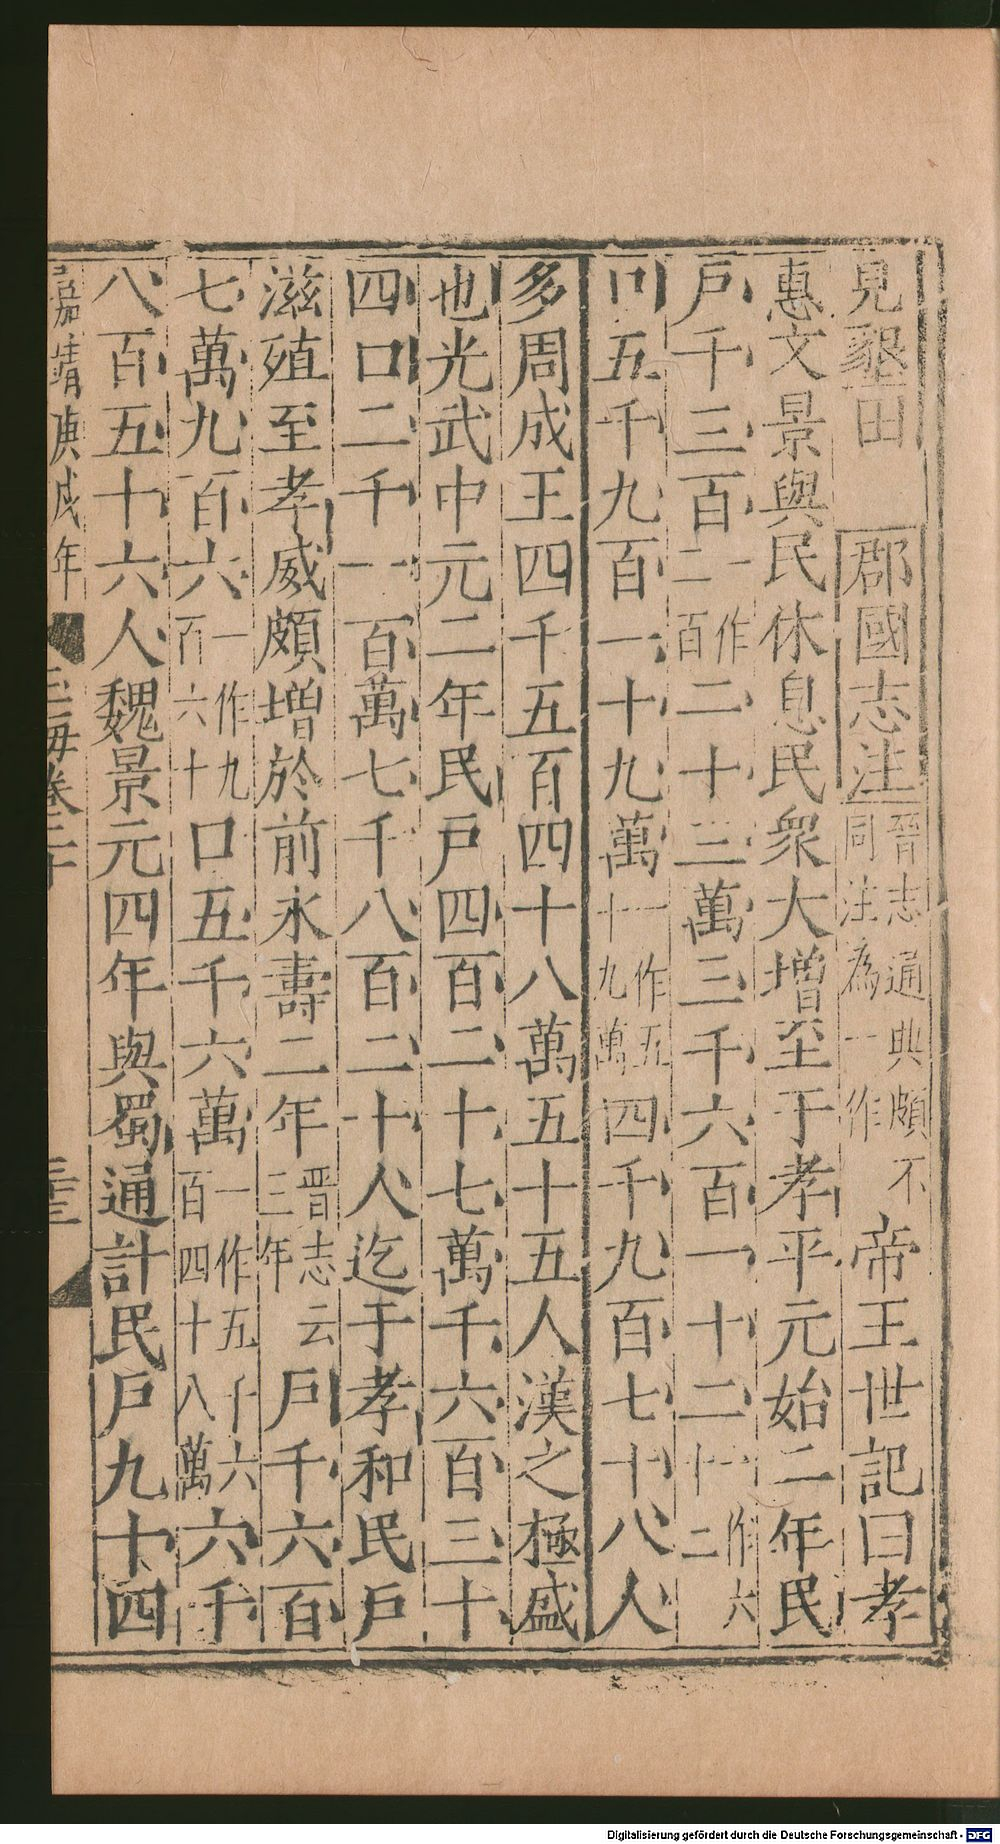 見墾田 郡國志注晉志通典頗不同注為一作帝王世記曰孝
惠文景與民休息民衆大增至于孝平元始二年民
戶千三百一作二百二十三萬三千六百一十二一作六十二
口五千九百一十九萬一作五十九萬四千九百七十八人
多周成王四千五百四十八萬五十五人漢之極盛
也光武中元二年民戶四百二十七萬千六百三十
四口二千一百萬七千八百二十人迄于孝和民戶
滋殖至孝威頗增於前永壽二年晋志云三年戶千六百
七萬九百六一作九百六十口五千六萬一作五千六百四十八萬六千
八百五十六人魏景元四年與蜀通計民戶九十四
嘉靖庚戌年 玉海卷二十
Digitalisierung gefördert durch die Deutsche Forschungsgemeinschaft - DFG